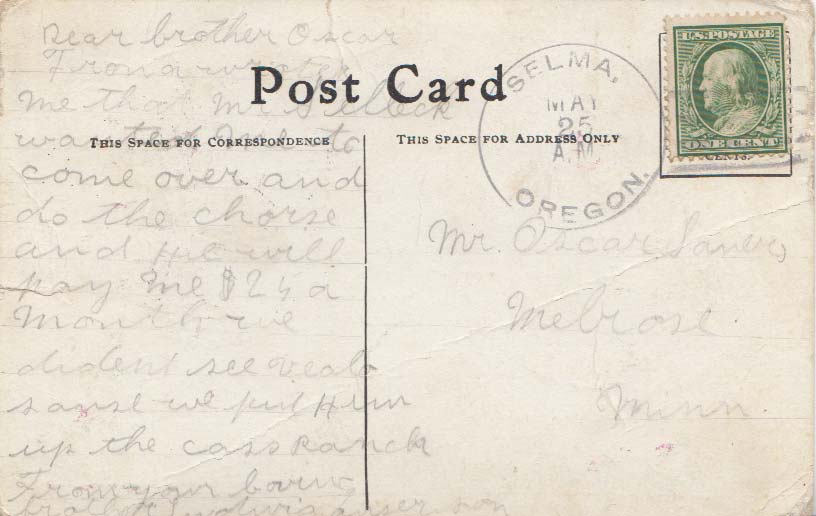 Dear brother Oscar
Frona wrote
me that Mr
wanted me to
come over and
do the chorse
and He will
pay me $25 a
Month we
dident see
sanse we put Him
up the cass Ranch
From your loving
brother
Post Card
THIS SPACE FOR CORRESPONDENCE
THIS SPACE FOR ADDRESS ONLY
SELMA,
MAY
25
A.M.
OREGON.
U.S. POSTAGE
ONE CENT
CENTS.
Mr. Oscar
Melrose
Minn